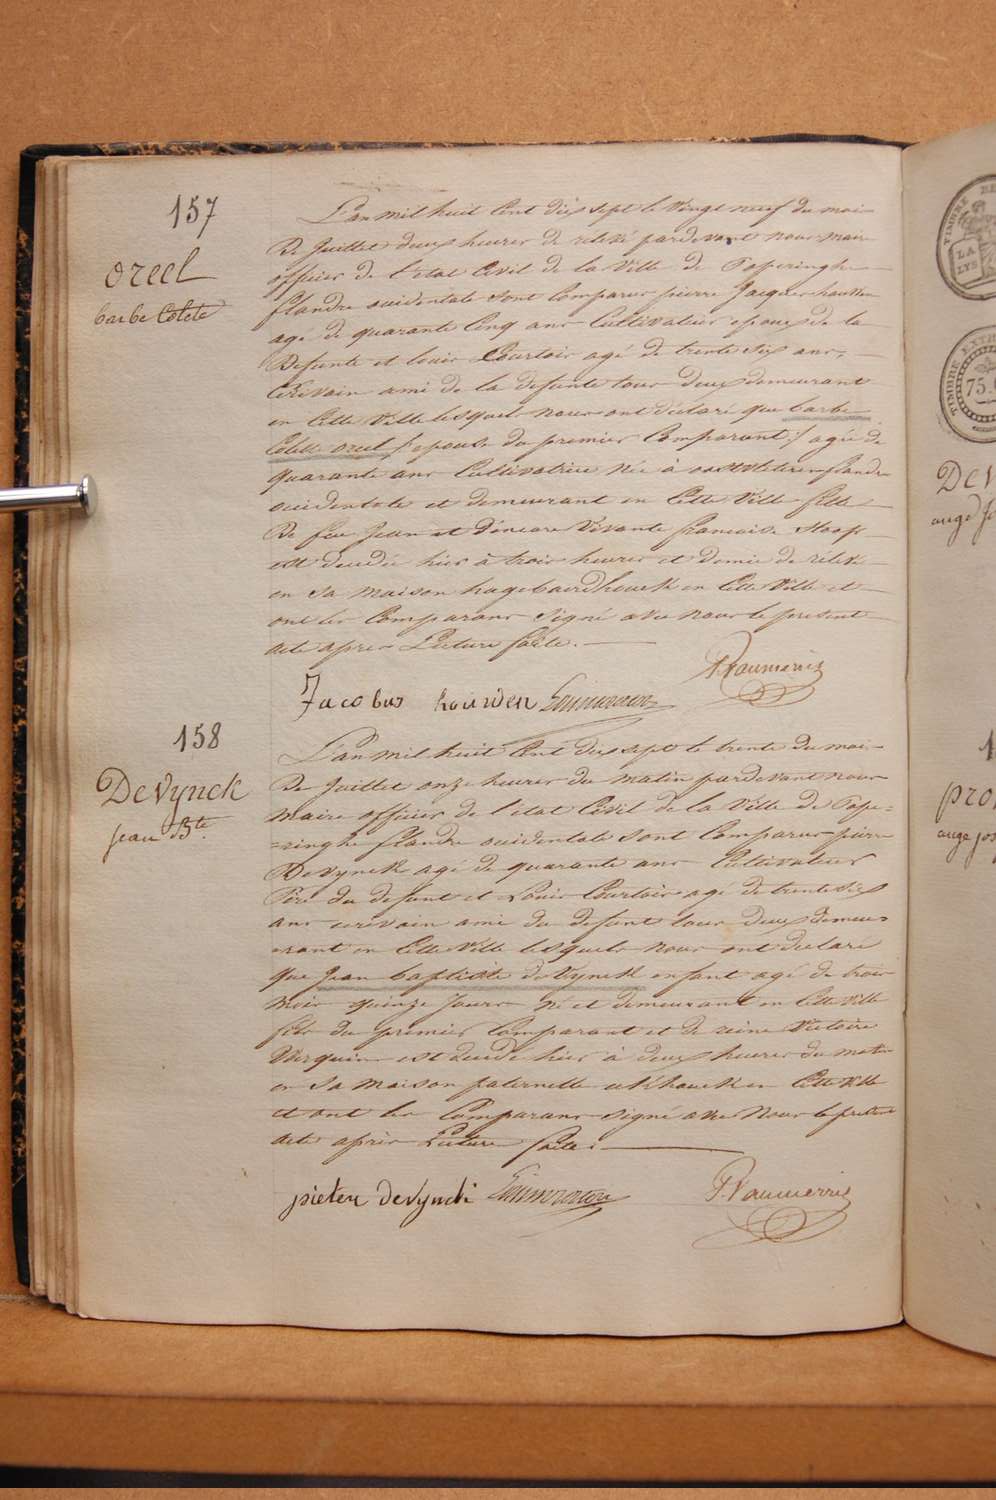 157
oreel
barbe Colete
L'an mil huit Cent dix sept le Vingt neuf du mois
De Juillet deux heures de relevé pardevant nous maire
officier de l'etat Civil de la Ville de Poperinghe
flandre occidentale sont Comparus pierre Jacques
agé de quarante Cinq ans Cultivateur epoux de la
Defunte et louis Courtois agé de trente six ans,
Ecrivain ami de la defunte tous deux demeurant
en Cette Ville lesquels nous ont déclaré que barbe
Colette oreel epouse du premier Comparant agée de
quarante ans Cultivatrice née à flandre
occidentale et demeurant en Cette Ville fille
De feu Jean et d'encore Vivante francoise Stoop
est decedée hier à trois heures et demie de relevé
en sa maison en Cette Ville et
ont les Comparans signé avec nous le present
acte apres Lecture faite.
Jacobus
P. Vaumerris
158
DeVynck
jean Bte
L'an mil huit Cent dix sept le trente du mois
De Juillet onze heures du matin pardevant nous
maire officier de l'état Civil de la Ville de Pope=
=ringhe flandre occidentale sont Comparus pierre
DeVynck agé de quarante ans Cultivateur
Pere du defunt et Louis Courtois agé de trente six
ans ecrivain ami du defunt tous deux demeu=
=rant en Cette Ville lesquels nous ont declaré
que Jean baptiste deVynck enfant agé de trois
mois quinze jours né et demeurant en Cette Ville
fils du premier Comparant et de reine Victoire
est decedé hier à deux heures du matin
en sa maison paternelle en Cette Ville
et ont les Comparans signé avec Nous le present
acte après Lecture faite.
pieter deVynck
P. Vaumerris
TIMBRE
LA
LYS
TIMBRE EXTR
75
DeV
ange jo
1
pro
ange jos